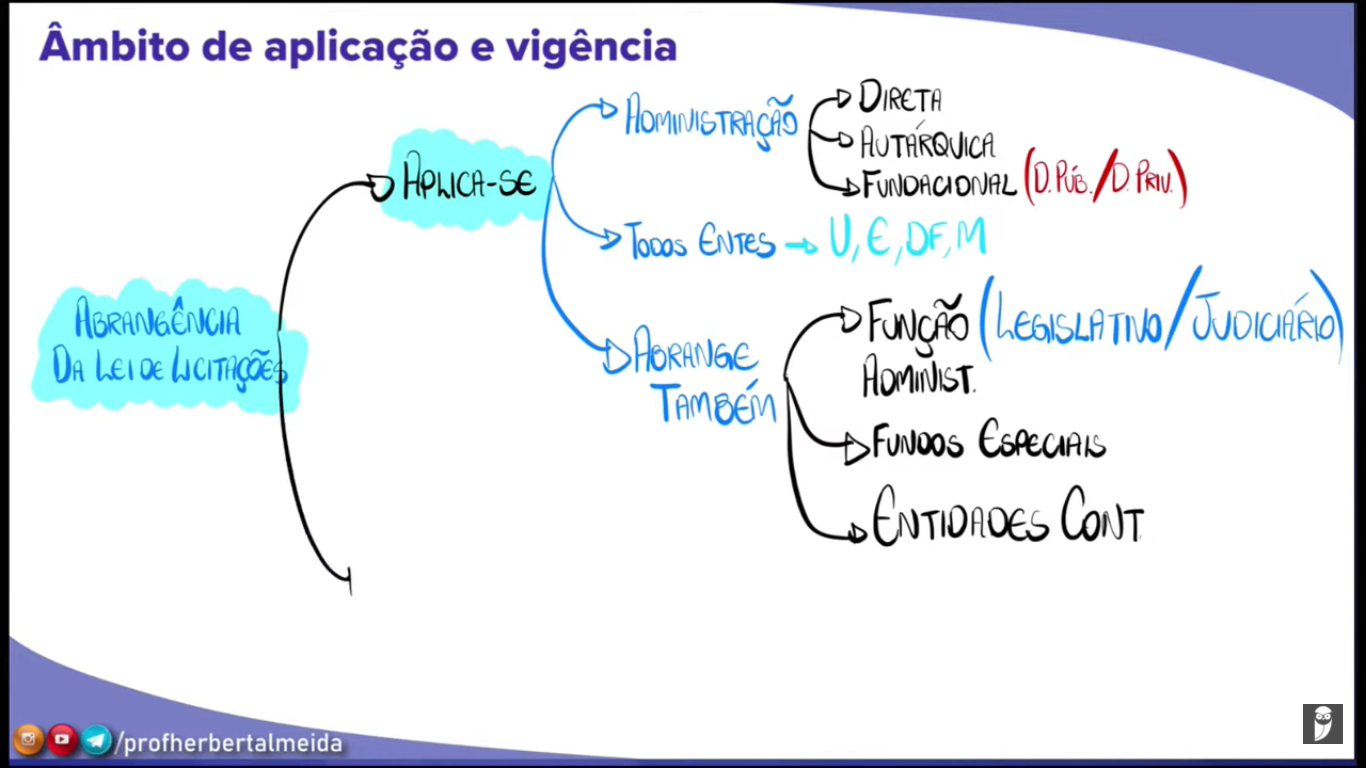 Âmbito de aplicação e vigência
ABRANGÊNCIA
DA LEI DE LICITAÇÕES
APLICA-SE
ADMINISTRAÇÃO
DIRETA
AUTÁRQUICA
FUNDACIONAL (D. PÚB./D. PRIV.)
TODOS ENTES → U, E, DF, M
ABRANGE
TAMBÉM
FUNÇÃO (LEGISLATIVO/JUDICIÁRIO)
ADMINIST.
FUNDOS ESPECIAIS
ENTIDADES CONT.
/profherbertalmeida